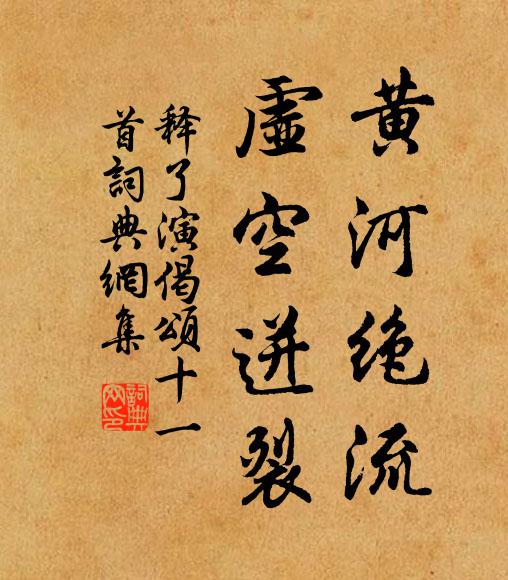 黄河绝流
虚空迸裂
释了演偈颂十一
首词典網集